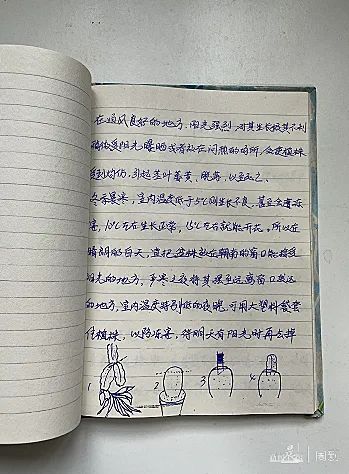 在通风良好的地方。阳光强烈,对其生长极其不利
受阳光曝晒或者处在闷热的场所,会使植株
受到灼伤,引起茎叶萎黄、脱落,以至死亡。
冬季严寒,室内温度低于5℃则生长不良,甚至会遭冻
害,10℃左右生长正常,15℃左右就能开花。所以在
晴朗的白天,宜把盆株放在朝南的窗口能接受
阳光的地方,严寒之夜将其移至远离窗口
的地方。室内温度特别低的夜晚,可用大塑料袋套
住植株,以防冻害,待明天有阳光时再去掉
1 2 3 4